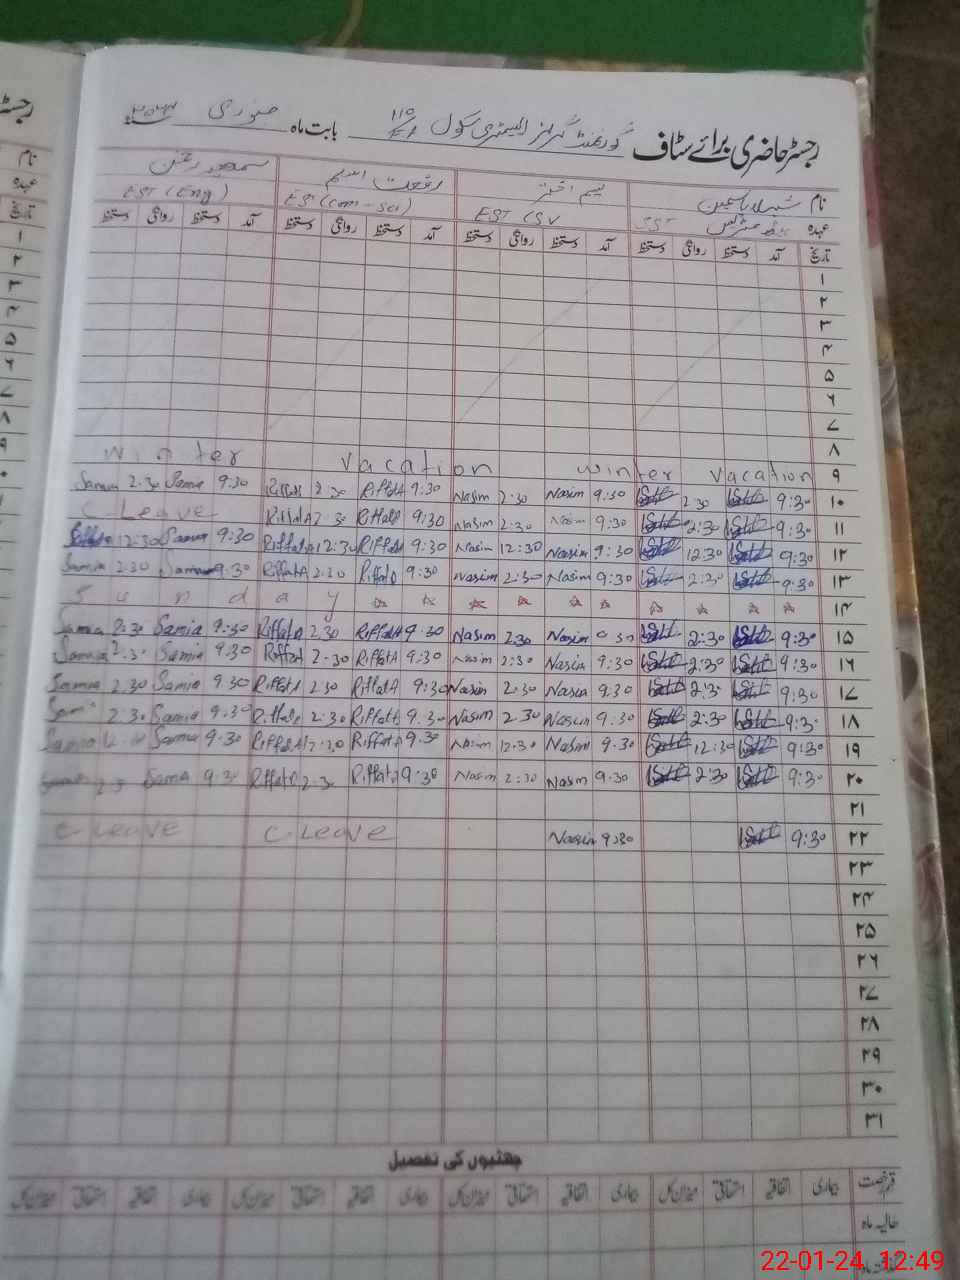 رجسٹر حاضری برائے سٹاف گورنمنٹ گرلز ایلیمنٹری سکول بابت ماہ جنوری
نام شہلا یاسمین نسیم اختر رفعت اسلم
عہدہ ہیڈ مسٹریس SST EST (SV EST (com-sci) EST (Eng)
تاریخ آمد دستخط روانگی دستخط آمد دستخط روانگی دستخط آمد دستخط روانگی دستخط آمد دستخط روانگی دستخط
۱
۲
۳
۴
۵
۶
۷
۸
Winter Vacation Winter Vacation ۹
Samia 2:30 Samia 9:30 Riffat 2:30 RiffatA 9:30 Nasim 2:30 Nasim 9:30 2:30 9:30 ۱۰
C Leave RiffatA 2:30 Riffat 9:30 Nasim 2:30 Nasim 9:30 2:30 9:30 ۱۱
12:30 Samia 9:30 RiffatA 12:30 RiffatA 9:30 Nasim 12:30 Nasim 9:30 12:30 9:30 ۱۲
Samia 2:30 Samia 9:30 RiffatA 2:30 Riffat 9:30 Nasim 2:30 Nasim 9:30 2:30 9:30 ۱۳
Sunday ۱۴
Samia 2:30 Samia 9:30 RiffatA 2:30 RiffatA 9:30 Nasim 2:30 Nasim 9:30 2:30 9:30 ۱۵
Samia 2:30 Samia 9:30 Riffat 2:30 RiffatA 9:30 Nasim 2:30 Nasim 9:30 2:30 9:30 ۱۶
Samia 2:30 Samia 9:30 RiffatA 2:30 RiffatA 9:30 Nasim 2:30 Nasim 9:30 2:30 9:30 ۱۷
2:30 Samia 9:30 Riffat 2:30 RiffatA 9:30 Nasim 2:30 Nasim 9:30 2:30 9:30 ۱۸
Samia 12:30 Samia 9:30 RiffatA 12:30 RiffatA 9:30 Nasim 12:30 Nasim 9:30 12:30 9:30 ۱۹
2:30 Samia 9:30 RiffatA 2:30 RiffatA 9:30 Nasim 2:30 Nasim 9:30 2:30 9:30 ۲۰
۲۱
C Leave C Leave Nasim 9:30 9:30 ۲۲
۲۳
۲۴
۲۵
۲۶
۲۷
۲۸
۲۹
۳۰
۳۱
چھٹیوں کی تفصیل
قسم رخصت بیماری اتفاقیہ استحقاقی میزان کل بیماری اتفاقیہ استحقاقی میزان کل بیماری اتفاقیہ استحقاقی میزان کل بیماری اتفاقیہ استحقاقی میزان کل
حالیہ ماہ
22-01-24 12:49